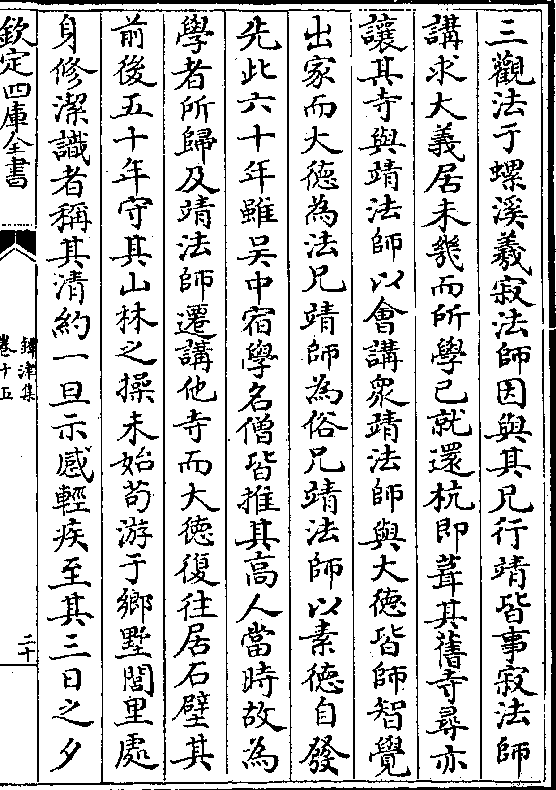 三觀法于螺溪羲寂法師因與其兄行靖皆事寂法師
講求大義居未幾而所學已就還杭即葺其舊寺尋亦
讓其寺與靖法師以會講衆靖法師與大徳皆師智覺
出家而大徳為法兄靖師為俗兄靖法師以素徳自發
先此六十年雖吳中宿學名僧皆推其高人當時故為
學者所歸及靖法師遷講他寺而大徳復往居石壁其
前後五十年守其山林之操未始苟游于鄉墅閭里處
身修潔識者稱其清約一旦示感輕疾至其三日之夕
欽定四庫全書
鐔津集
卷十五
二十